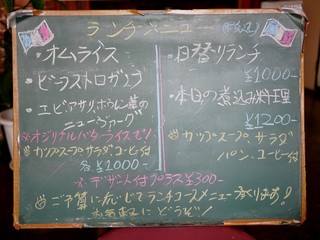 ランチメニュー
・オムライス
・ビーフストロガノフ
・エビ、アサリ、ホウレン草の
ニューヴァーグ
※オリジナルバターライスです!
カップスープ、サラダ、コーヒー付
各¥1000-
※デザート付プラス¥300-
・日替りランチ
¥1000-
・本日の煮込み料理
¥1200-
カップスープ、サラダ
パン、コーヒー付
ご予算に応じてランチコースメニューつくります!
お気軽にどうぞ!